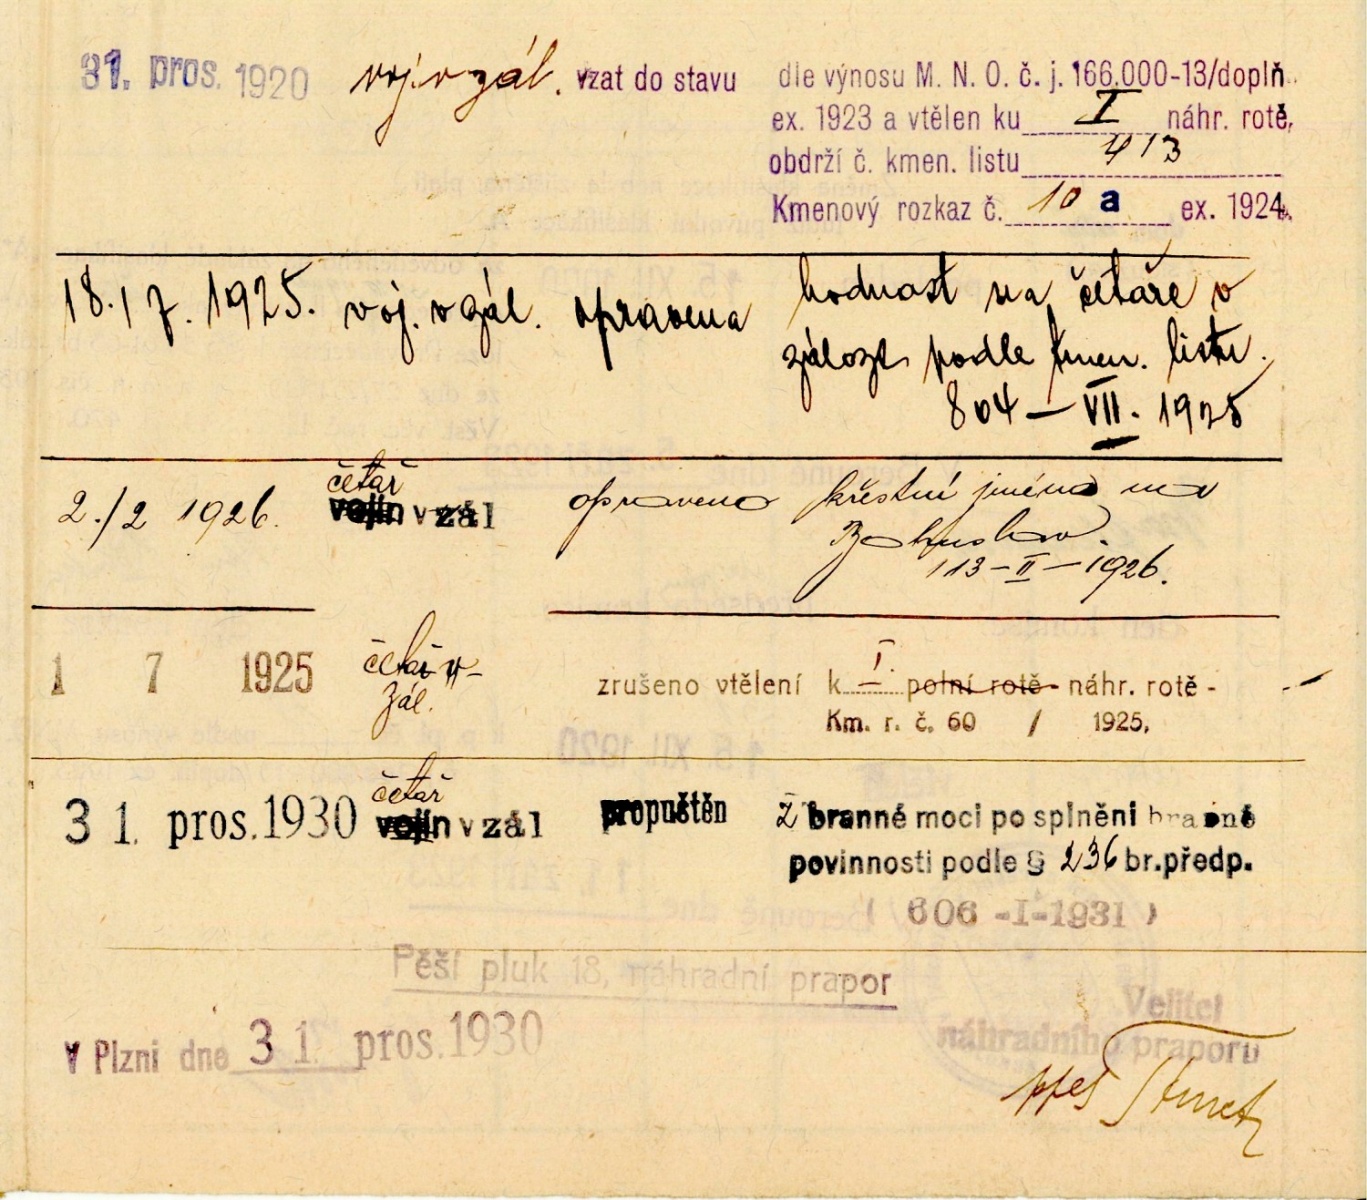 31. pros. 1920 voj. v zál. vzat do stavu dle výnosu M. N. O. č. j. 166.000-13/doplň.
ex. 1923 a vtělen ku I náhr. rotě,
obdrží č. kmen. listu 413
Kmenový rozkaz č. 10 a ex. 1924.
18./7. 1925. voj. v zál. opravena hodnost na četaře v
záloze podle kmen. listu.
804 – VII. 1925
četař
2./2 1926. vojín v zál opraveno křestní jméno na
Bohuslav.
113 – II – 1926.
1 7 1925 četař v
zál.
zrušeno vtělení k I. polní rotě - náhr. rotě -
Km. r. č. 60 / 1925.
četař
31. pros. 1930 vojín v zál propuštěn z branné moci po splnění branné
povinnosti podle § 236 br. předp.
( 606 -I-1931 )
Pěší pluk 18, náhradní prapor
Velitel
náhradního praporu
V Plzni dne 31. pros. 1930